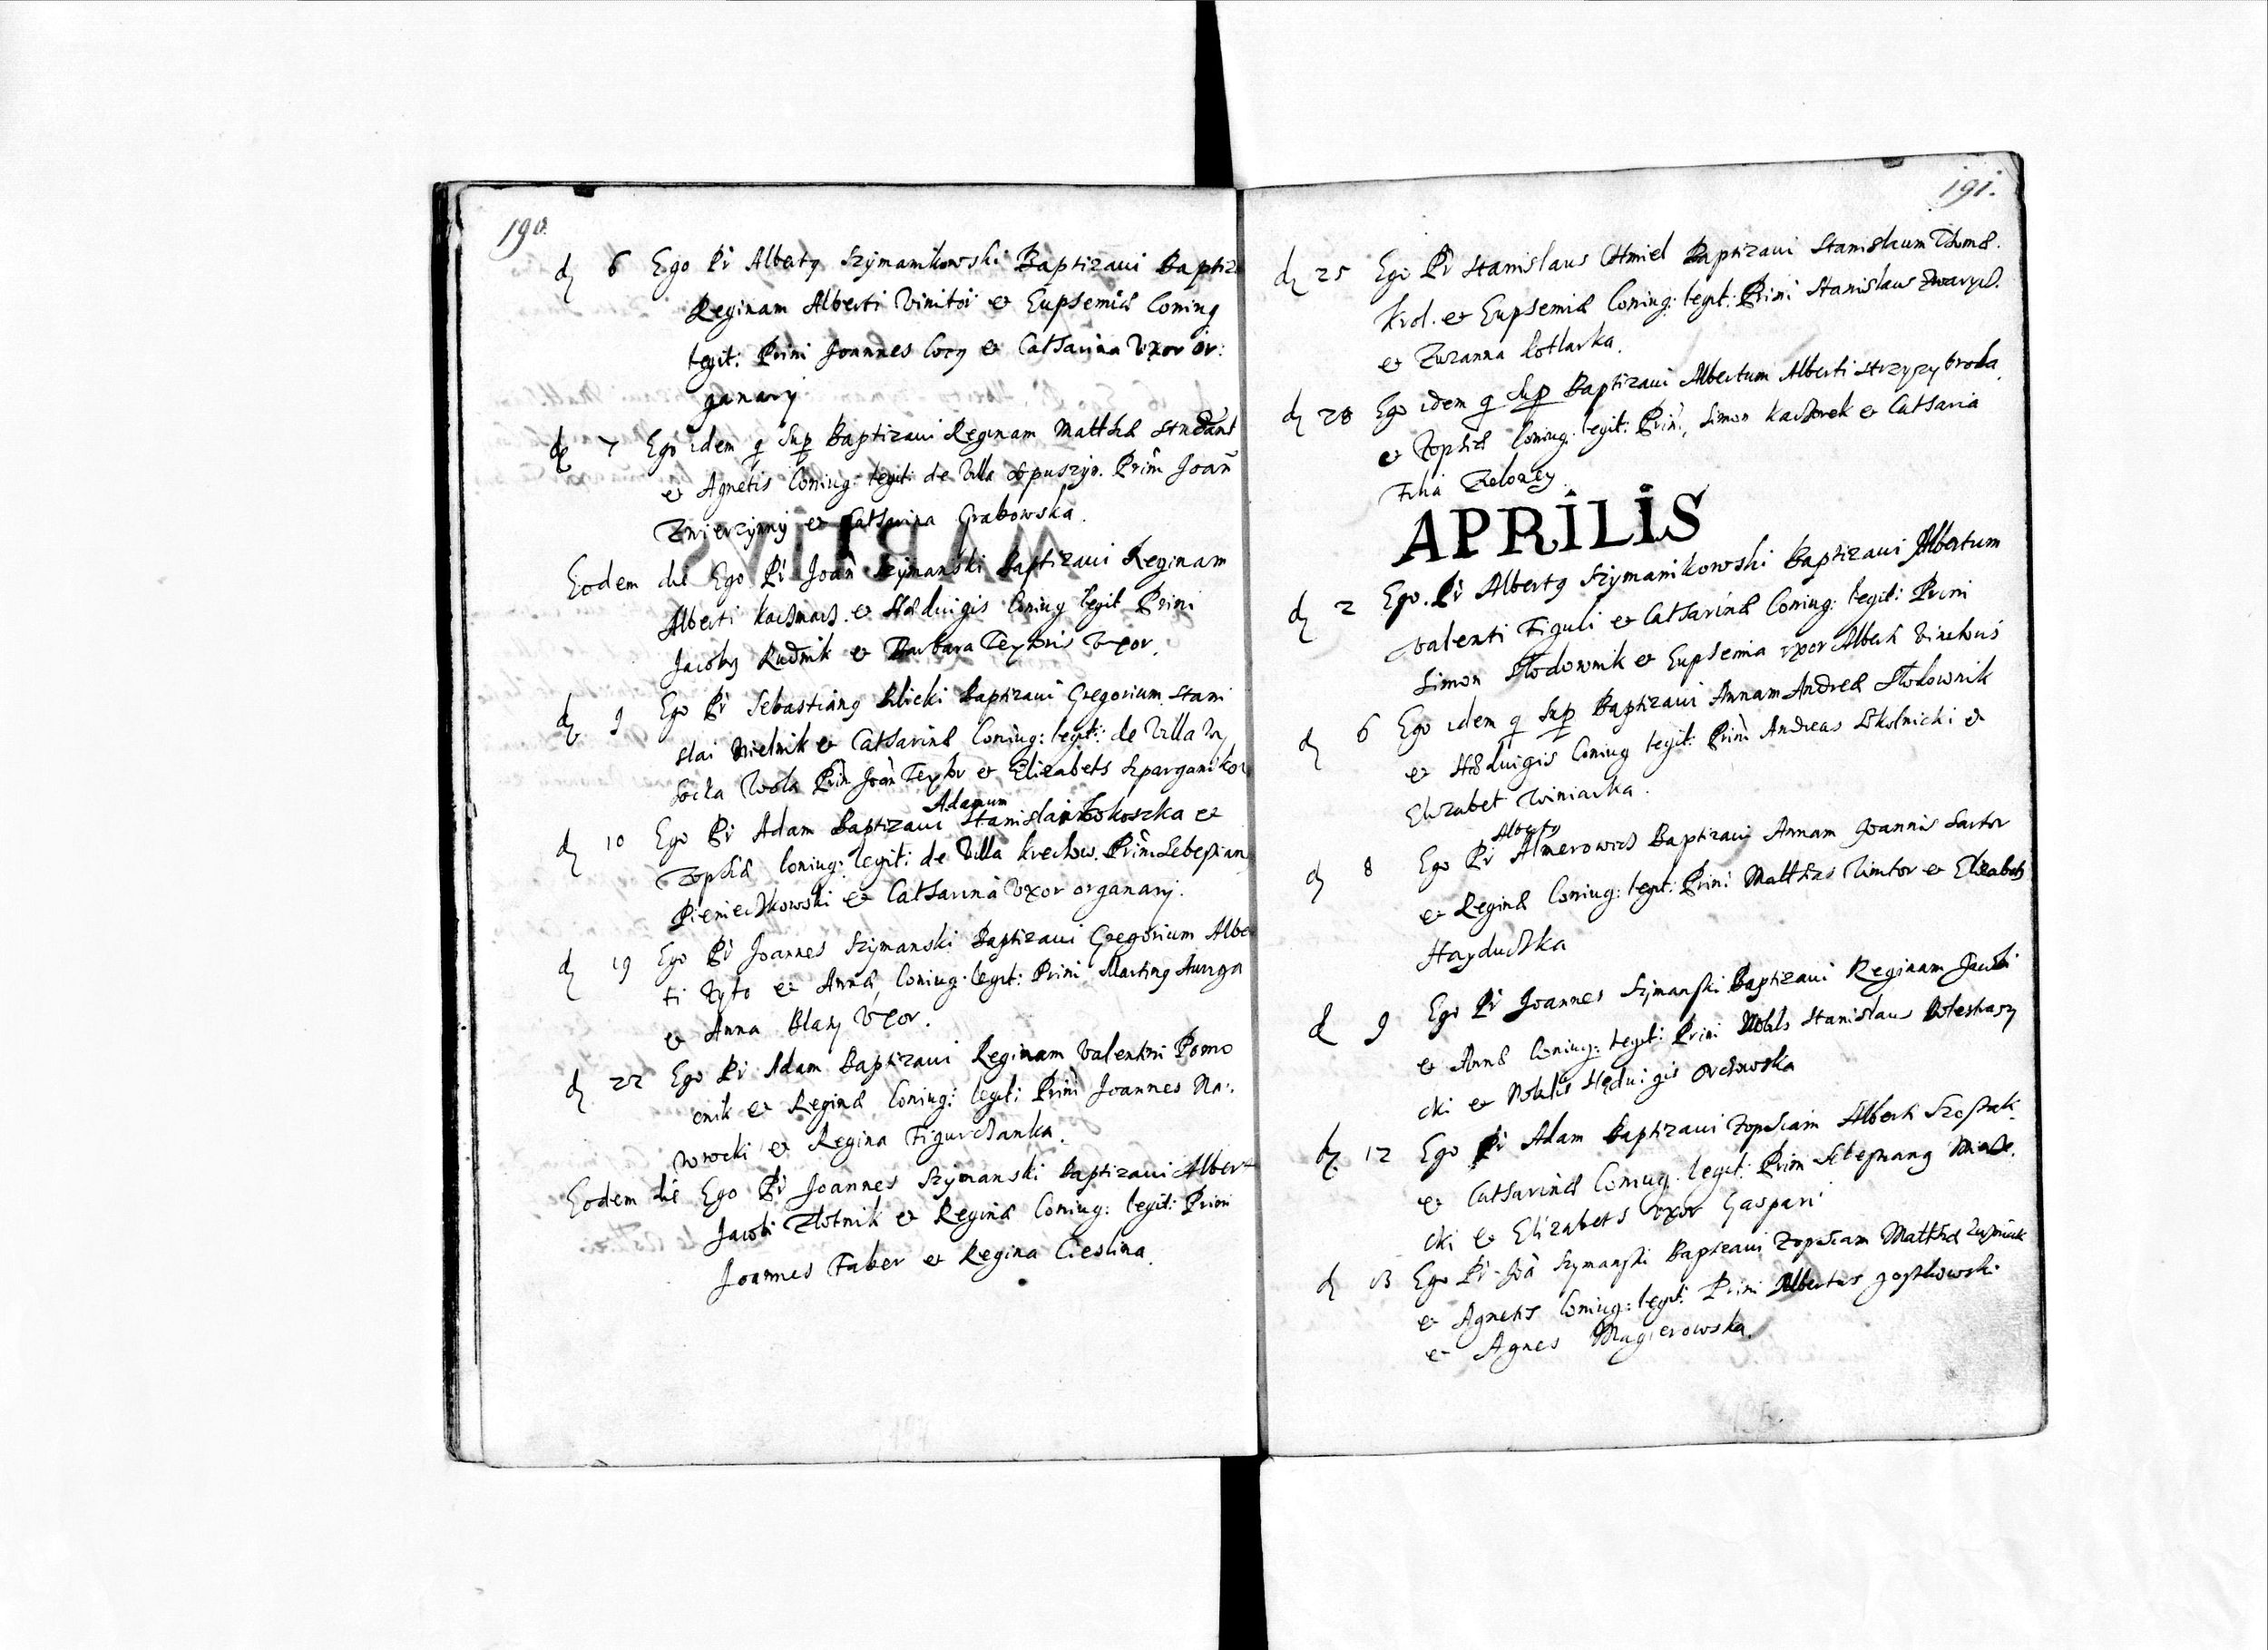 190
d 6 Ego Pr Alberty Szymanikowski Baptizaui Baptiz
Reginam Alberti Vinitor & Euphemiæ Coniug
legit: Prini Joannes Cozy & Catharina Vxor or:
ganarij
d 7 Ego idem q sup Baptizaui Reginam Matthæ Student
& Agnetis Coniug: legit: de Villa Lopuszyn. Prini Joan
Zwierzynny & Catharina Grabowska.
Eodem die Ego Pr Joan Szymanski Baptizaui Reginam
Alberti kachmarz. & Hæduigis Coniug legit Prini
Jacoby Rudnik & Barbara Textoris Vxor.
d 9 Ego Pr Sebastiang Bilicki Baptizaui Gregorium Stani
slai Mielnik & Catharinæ Coniug: legit: de Villa Wy
socka Wola Prin Joan Textor & Elizabeth Szpargani
d 10 Ego Pr Adam Baptizaui Adamum Stanislai kokoszka &
Zophiæ Coniug: legit: de Villa krechow. Prini Sebestian
Pieniechkowski & Catharina Vxor organarij.
d 19 Ego Pr Joannes Szymanski Baptizaui Gregorium Albe
ti Zyto & Annæ, Coniug: legit: Prini Marting Auriga
& Anna Blasy Vxor.
d 22 Ego Pr Adam Baptizaui Reginam Valentini Pomo
cnik & Reginæ Coniug: legit: Prini Joannes Na:
wrocki & Regina Figurchanka.
Eodem die Ego Pr Joannes Szymanski Baptizaui Albert
Jacobi Zlotnik & Reginæ Coniug: legit: Prini
Joannes Faber & Regina Cieslina.
191.
d 25 Ego Pr Stanislaus Chmiel Baptizaui Stanislaum Thomæ.
krol. & Euphemiæ Coniug: legit: Prini Stanislaus Zwarych.
& Zuzanna kotlarka.
d 28 Ego idem q sup Baptizaui Albertum Alberti Strzyzybroda
& Zophiæ Coniug: legit: Prini, Simon kachorek & Catharia
Filia Zelozey.
APRILIS
d 2 Ego. Pr Alberty Szymanikowski Baptizaui Albertum
Valenti Figuli & Catharinæ Coniug: legit: Prini
Simon Slodownik & Euphemia vxor Alberti Vinitoris
d 6 Ego idem q sup Baptizaui Annam Andreæ Slodownik
& Hæduigis Coniug legit: Prini Andreas Sokolnicki &
Elizabet Winiarka.
d 8 Ego Pr Alberty Almerowich Baptizaui Annam Joannis Sartor
& Reginæ Coniug: legit: Prini Matthias Tinctor & Elizabeth
Hayduchka
d 9 Ego Pr Joannes Szymanski Baptizaui Reginam Jacobi
& Annæ Coniug: legit: Prini Nobilis Stanislaus
cki & Nobilis Hęduigis Orchowska
d 12 Ego Pr Adam Baptizaui Zophiam Alberti Szostak
& Catharinæ Coniug. legit: Prini Stephang
cki & Elizabeth vxor Gaspari
d 13 Ego Pr Joa Szymanski Baptizaui Zophiam Matthiæ
& Agnetis Coniug: legit: Prini Albertus Jostkowski
& Agnes Magierowska.